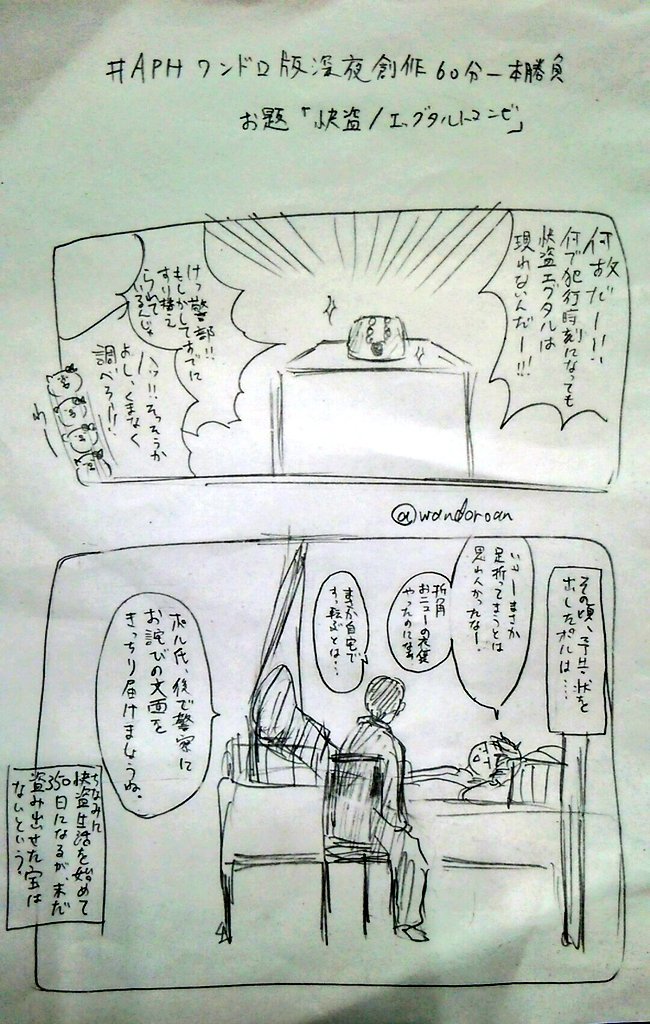 #APHワンドロ版深夜創作60分一本勝負
お題「怪盗/エッグタルトマンセ」
何故だーー!!
何で犯行時刻になっても
怪盗エグタルは
現れないんだー!!!
けっ警部!!
もしかしてすでに
すり替え
られて
いるんじゃ
ハッ!!そっそうか
よし、くまなく
調べろー!!
@wandoroan
その頃、予告状を
出したポルは…
いやーまさか
足折ってまうとは
思わんかったなー。
折角
おニューの衣装
やったのに
まさか自宅で
すっ転ぶとは…
ポル氏、後で警察に
お詫びの文面を
きっちり届けましょうね。
ちなみに
怪盗生活を始めて
350日になるが、未だ
盗み出せた宝は
ないという。